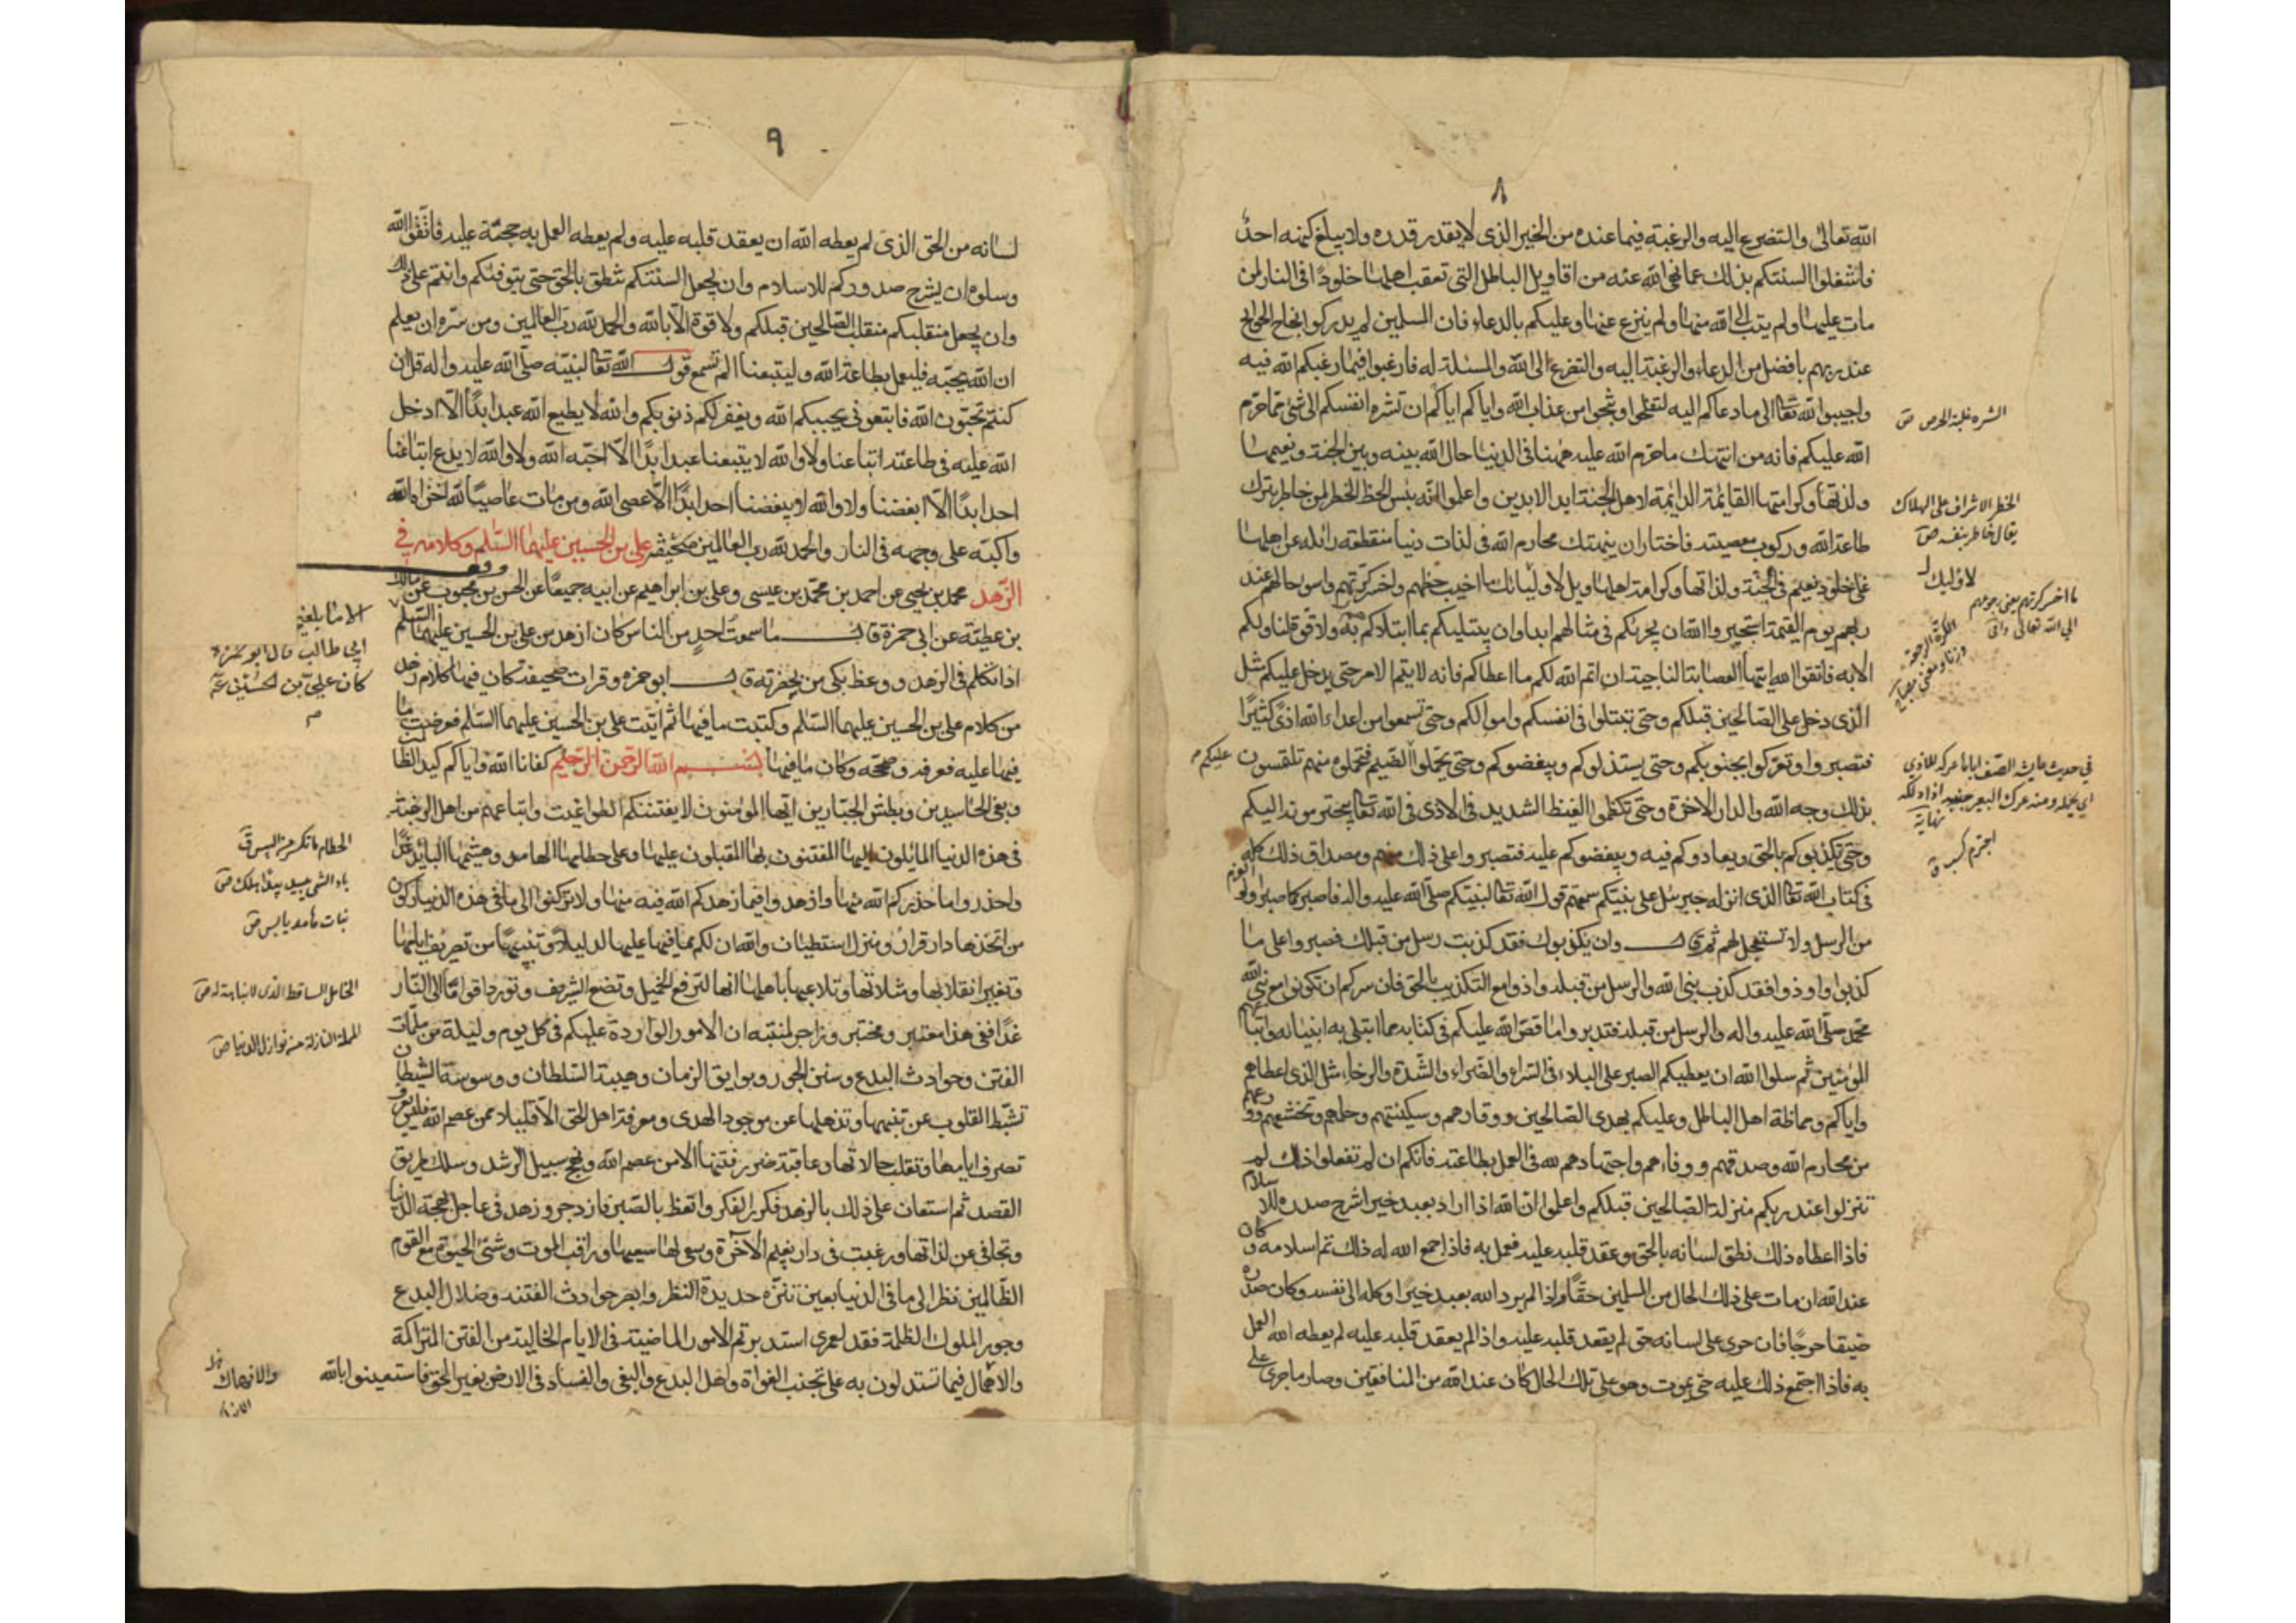 ٨
الله تعالى والتضرع اليه والرغبة فيما عنده من الخير الذى لا يقدر قدره ولا يبلغ كنهه احد
فاشغلوا السنتكم بذلك عما نهى الله عنه من اقاويل الباطل التى تعقب اهلها خلودًا فى النار لمن
مات عليها ولم يتب الى الله منها ولم ينزع عنها وعليكم بالدعاء فان المسلمين لم يدركوا نجاح الحوايج
عند ربهم بافضل من الدعاء والرغبة اليه والتضرع الى الله والمسئلة له فارغبوا فيما رغبكم الله فيه
واجيبوا الله تعا الى ما دعاكم اليه لتفلحوا وتنجوا من عذاب الله واياكم اياكم ان تشره انفسكم الى شئ مما حرم
الله عليكم فانه من انتهك ما حرم الله عليه ههنا فى الدنيا حال الله بينه وبين الجنة ونعيمها
ولذتها وكرامتها القائمة الدائمة لاهل الجنة ابد الابدين واعلموا انه بئس الحظ الخطر لمن خاطر بترك
طاعة الله وركوب معصيته فاختار ان ينتهك محارم الله فى لذات دنيا منقطعة زائلة عن اهلها
على خلود نعيم فى الجنة ولذاتها وكرامة اهلها ويل لاولئك ما اخيب حظهم واخسر كرتهم واسوء حالهم عند
ربهم يوم القيمة استجيروا الله ان يجريكم فى مثالهم ابدا وان يبتليكم بما ابتلاهم به ولا قوة لنا ولكم
الا به فاتقوا الله ايتها العصابة الناجية ان اتم الله لكم ما اعطاكم فانه لا يتم الامر حتى يدخل عليكم مثل
الذى دخل على الصالحين قبلكم وحتى تبتلوا فى انفسكم واموالكم وحتى تسمعوا من اعداء الله اذى كثيرًا
فتصبروا وتعركوا بجنوبكم وحتى يستذلوكم ويبغضوكم وحتى يحملوا الضيم فتحملوه منهم تلتمسون
عليكم م
بذلك وجه الله والدار الاخرة وحتى تكظموا الغيظ الشديد فى الاذى فى الله تعا يجترمونه اليكم
وحتى يكذبوكم بالحق ويعادوكم فيه ويبغضوكم عليه فتصبروا على ذلك منهم ومصداق ذلك كله
فى كتاب الله تعا الذى انزله جبرئل على نبيكم سمعتم قول الله تعا لنبيكم صلى الله عليه واله فاصبر كما صبر اولو العزم
من الرسل ولا تستعجل لهم ثم قال وان يكذبوك فقد كذبت رسل من قبلك فصبروا على ما
كذبوا واوذوا فقد كذب نبى الله والرسل من قبله واوذوا مع التكذيب بالحق فان سركم ان تكونوا مع نبى الله
محمد صلى الله عليه واله والرسل من قبله فتدبروا ما قص الله عليكم فى كتابه مما ابتلى به انبيائه واتباعهم
المؤمنين ثم سلوا الله ان يعطيكم الصبر على البلاء فى السراء والضراء والشدة والرخاء مثل الذى اعطاهم
واياكم ومماظة اهل الباطل وعليكم بهدى الصالحين ووقارهم وسكينتهم وحلمهم وتخشعهم وورعهم
من محارم الله وصدقهم ووفاءهم واجتهادهم لله فى العمل بطاعته فانكم ان لم تفعلوا ذلك لم
تنزلوا عند ربكم منزلة الصالحين قبلكم واعلموا ان الله اذا اراد بعبد خيرا شرح صدره للاسلام
فاذا اعطاه ذلك نطق لسانه بالحق وعقد قلبه عليه فعمل به فاذا جمع الله له ذلك تم اسلامه وكان
عند الله ان مات على ذلك الحال من المسلمين حقًا واذا لم يرد الله بعبد خيرًا وكله الى نفسه وكان صدره
ضيقا حرجًا فان جرى على لسانه حق لم يعقد قلبه عليه واذا لم يعقد قلبه عليه لم يعطه الله العمل
به فاذا اجتمع ذلك عليه حتى يموت وهو على تلك الحال كان عند الله من المنافقين وصار ما جرى على
الشره غلبة الحرص ص
الخطر الاشراف على الهلاك
يقال خاطر بنفسه ص
لاوليك
ما اخسر كرتهم يعنى رجوعهم
الى الله تعالى
الكرة الرجعة
فى حديث عايشة تصف اباها عركه للاذى
اى يحمله ومنه عرك البعير جنبه اذا دلكه
نهاية
اجترم كسب ق
٩
لسانه من الحق الذى لم يعطه الله ان يعقد قلبه عليه ولم يعطه العمل به حجة عليه فاتقوا الله
وسلوه ان يشرح صدوركم للاسلام وان يجعل السنتكم تنطق بالحق حتى يتوفيكم وانتم على ذلك
وان يجعل منقلبكم منقلب الصالحين قبلكم ولا قوة الا بالله والحمد لله رب العالمين ومن سره ان يعلم
ان الله يحبه فليعمل بطاعة الله وليتبعنا الم تسمع قول الله تعا لنبيه صلى الله عليه واله قل ان
كنتم تحبون الله فاتبعونى يحببكم الله ويغفر لكم ذنوبكم والله لا يطيع الله عبد ابدًا الا ادخل
الله عليه فى طاعته اتباعنا ولا والله لا يتبعنا عبد ابدًا الا احبه الله ولا والله لا يدع اتباعنا
احد ابدًا الا ابغضنا ولا والله لا يبغضنا احد ابدًا الا عصى الله ومن مات عاصيًا لله اخزاه الله
واكبه على وجهه فى النار والحمد لله رب العالمين صحيفة على بن الحسين عليهما السلم وكلامه فى
الزهد محمد بن يحيى عن احمد بن محمد بن عيسى وعلى بن ابراهيم عن ابيه جميعًا عن الحسن بن محبوب عن مالك
بن عطية عن ابى حمزة قال ما سمعت احد من الناس كان ازهد من على بن الحسين عليهما السلم
اذا تكلم فى الزهد ووعظ بكى من بحضرته قال ابو حمزه وقرات صحيفة كان فيها كلام زهد
من كلام على بن الحسين عليهما السلم وكتبت ما فيها ثم اتيت على بن الحسين عليهما السلم فعرضت ما
فيها عليه فعرفه وصححه وكان ما فيها بسم الله الرحمن الرحيم كفانا الله واياكم كيد الظالمين
وبغى الحاسدين وبطش الجبارين ايها المؤمنون لا يفتننكم الطواغيت واتباعهم من اهل الرغبة
فى هذه الدنيا المائلون اليها المفتنون بها المقبلون عليها وعلى حطامها الهامد وهشيمها البائد غدًا
واحذروا ما حذركم الله منها وازهدوا فيما زهدكم الله فيه منها ولا تركنوا الى ما فى هذه الدنيا ركون
من اتخذها دار قرار ومنزل استيطان والله ان لكم مما فيها عليها لدليلا وتنبيهًا من تصريف ايامها
وتغير انقلابها ومثلاتها وتلاعبها باهلها انها لترفع الخميل وتضع الشريف وتورد اقوامًا الى النار
غدًا ففى هذا معتبر ومختبر وزاجر لمنتبه ان الامور الواردة عليكم فى كل يوم وليلة من ملمات
الفتن وحوادث البدع وسنن الجور وبوايق الزمان وهيبة السلطان ووسوسة الشيطان
تثبط القلوب عن تنبهها وتذهلها عن موجود الهدى ومعرفة اهل الحق الا قليلا ممن عصم الله فليس يعرف
تصرف ايامها وتقلب حالاتها وعاقبة ضرر فتنتها الا من عصم الله ونهج سبيل الرشد وسلك طريق
القصد ثم استعان على ذلك بالزهد فكرر الفكر واتعظ بالصبر فازدجر وزهد فى عاجل بهجة الدنيا
وتجافى عن لذاتها ورغبت فى دار نعيم الآخرة وسعى لها سعيها وراقب الموت وشنئ الحيوة مع القوم
الظالمين نظر الى ما فى الدنيا بعين نيرة حديدة النظر وابصر حوادث الفتنة وضلال البدع
وجور الملوك الظلمة فقد لعمرى استدبرتم الامور الماضية فى الايام الخالية من الفتن المتراكمة
والانهماك فيما تستدلون به على تجنب الغواة واهل البدع والبغى والفساد فى الارض بغير الحق فاستعينوا بالله
الا ما بلغنى
ابى طالب قال ابو حمزة
كان على بن الحسين ع
م
الحطام ما تكسر من اليبس ق
باد الشئ يبيد بيدًا هلك ص
نبات هامد يابس ص
الخامل الساقط الذى لا نباهة له ص
الملمة النازلة من نوازل الدنيا ص
والانهماك